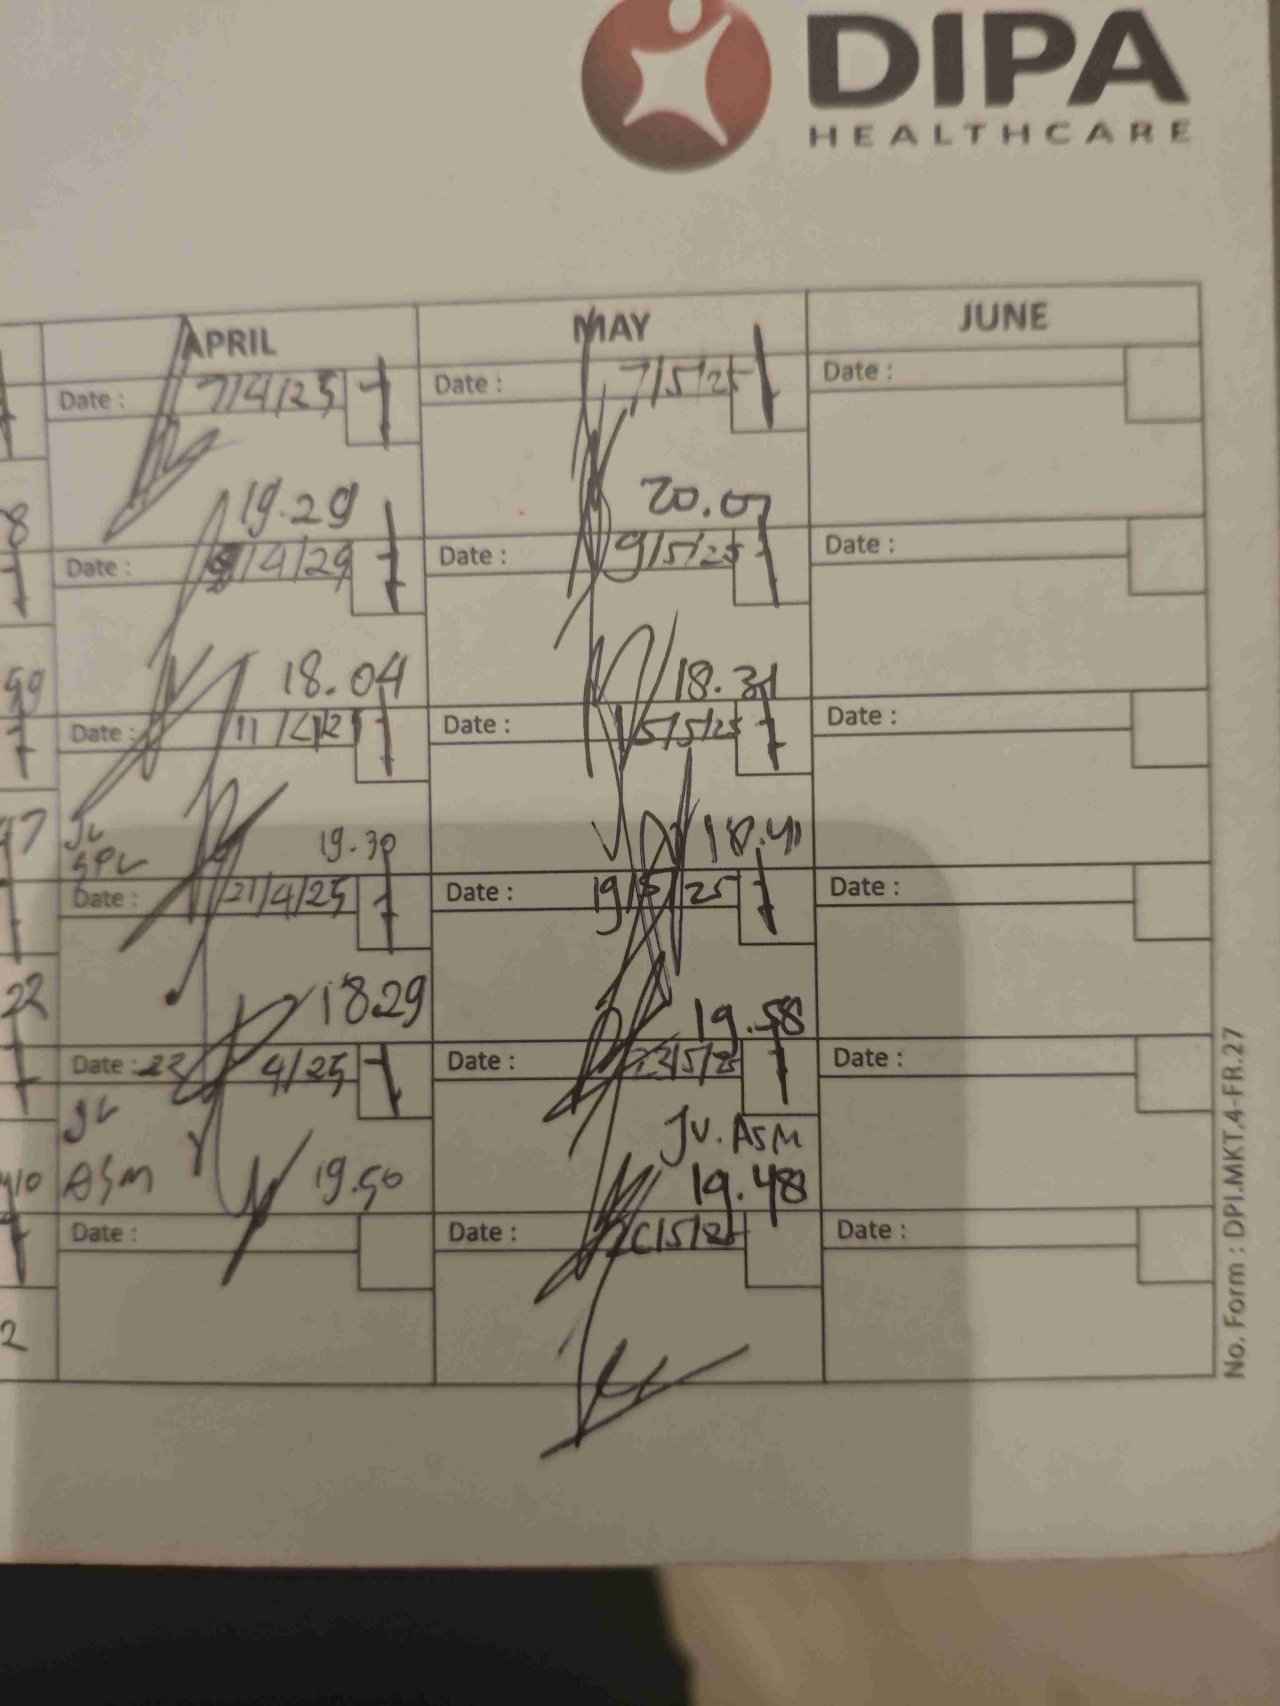 DIPA
HEALTHCARE
APRIL MAY JUNE
Date : 7/4/25 Date : 7/5/25 Date :
8 19.29 20.07
Date : 9/4/29 Date : 9/5/25 Date :
99 18.04 18.31
Date : 11/4/2 Date : 15/5/25 Date :
47 JV SPV 19.30 18.41
Date : 21/4/25 Date : 19/5/25 Date :
22 18.29 19.58
Date : 23 4/25 Date : 23/5/25 Date :
JV Jv. ASM
10 ASM 19.50 19.48
Date : Date : 26/5/25 Date :
2
No. Form : DPI.MKT.4-FR.27